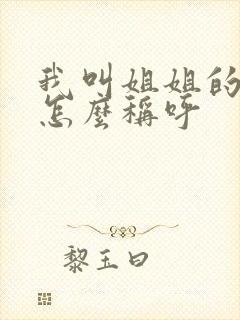 我叫姐姐的
怎麼稱呼
黎玉曰